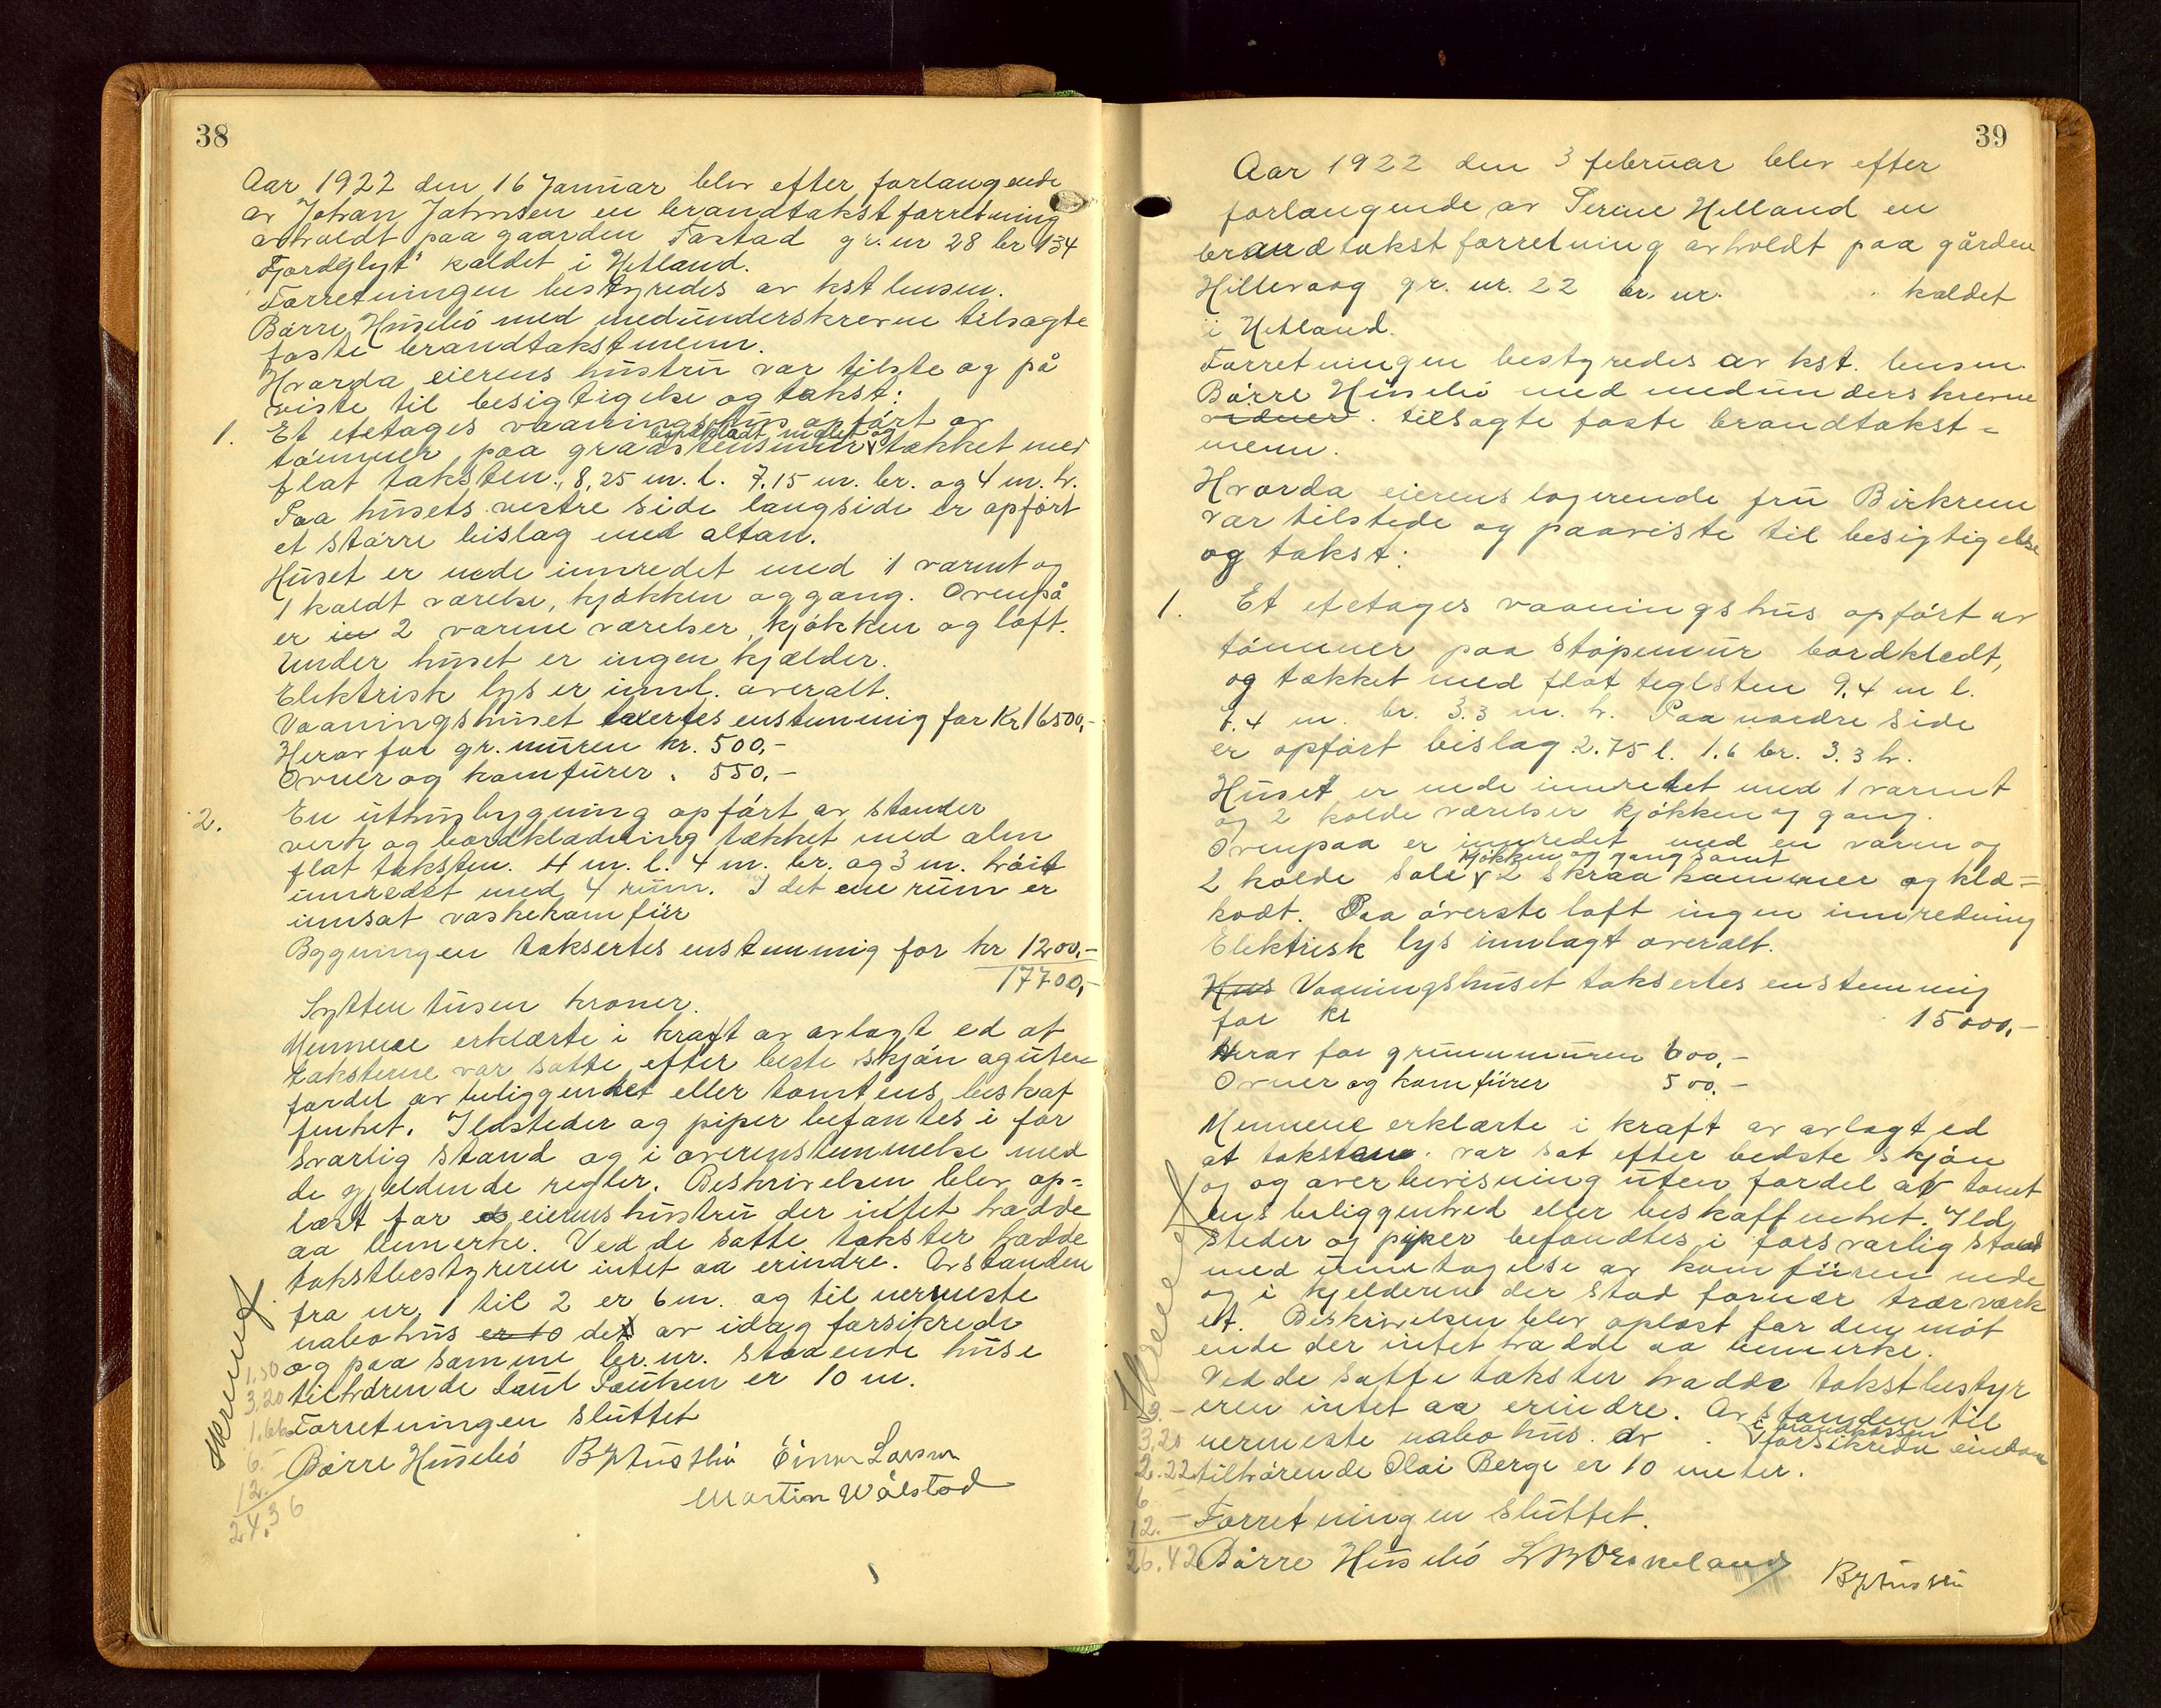 38
Aar 1922 den 16 Januar blev efter forlangende
av Johan Johnsen en brandtakstforretning
avholdt paa gaarden Tastad gr. nr 28 br 134
"Fjordglyt" kaldet i Hetland.
Forretningen bestyredes av kst lensm.
Børre Husebø med medunderskrevne tilsagte
faste brandtakstmenn.
Hvorda eierens hustru var tilste og på
viste til besigtigelse og takst:
1. Et etetages vaaningshus opført av
bordklædt malet og
tømmer paa graastensmur tækket med
flat taksten. 8,25 m. l. 7,15 m. br. og 4 m. h.
Paa husets vestre side langside er opført
et større bislag med altan.
Huset er nede innredet med 1 varmt og
1 koldt værelse, kjøkken og gang. Ovenpå
er in 2 varme værelser, kjøkken og loft.
Under huset er ingen kjælder.
Elektrisk lys er innl. overalt.
Vaaningshuset taxertes enstemmig for Kr 16500,-
Herav for gr. muren kr. 500,-
Ovner og komfurer " 550,-
2. En uthusbygning opført av stender
verk og bordklædning tækket med alm
flat taksten. 4 m. l. 4 m. br. og 3 m. høit
innredet med 4 rum. I det ene rum er
innsat vaskekomfur
Bygningen taksertes enstemmig for kr 1200,-
17700,-
Sytten tusen kroner.
Mennene erklærte i kraft av avlagt ed at
taksterne var satte efter beste skjøn og uten
fordel av beliggenhet eller tomtens beskaf
fenhet. Ildsteder og piper befantes i for
svarlig stand og i overenstemmelse med
de gjeldende regler. Beskrivelsen blev op-
læst for eierens hustru der intet hadde
aa bemerke. Ved de satte takster hadde
takstbestyreren intet aa erindre. Avstanden
fra nr. 1 til 2 er 6 m. og til nermeste
nabohus er 10 det av idag forsikrede
og paa samme br. nr. staaende huse
tilhørende Laul Paulsen er 10 m.
Forretningen sluttet
Børre Husebø B Husebø Einar Larsen
Martin Wålstad
Skrevet
1,50
3,20
1,66
6.-
12.-
24,36
39
Aar 1922 den 3 februar blev efter
forlangende av Serine Helland en
brandtakstforretning avholdt paa gården
Hillevaag gr. nr. 22 br. nr. kaldet
i Hetland.
Forretningen bestyredes av kst. lensm.
Børre Husebø med medunderskrevne
vidner. tilsagte faste brandtakst=
menn.
Hvorda eierens logerende fru Birkrem
var tilstede og paaviste til besigtigelse
og takst:
1. Et etetages vaaningshus opført av
tømmer paa støpemur bordkledt,
og tækket med flat teglsten 9,4 m l.
7.4 m. br. 3.3 m. h. Paa nordre side
er opført bislag 2.75 l. 1.6 br. 3.3 h.
Huset er nede innredet med 1 varmt
og 2 kolde værelser kjøkken og gang.
Ovenpaa er innredet med en varm og
kjøkken og gang samt
2 kolde sale 2 skraa kammer og klæ=
kodt. Paa øverste loft ingen innredning
Elektrisk lys innlagt overalt.
Hus Vaaningshuset taksertes enstemmig
for kr 15000,-
Herav for grunnmuren 600,-
Ovner og komfürer 500,-
Mennene erklærte i kraft av avlagt ed
at takstene var sat efter bedste skjøn
og og overbevisning uten fordel av tomt
ens beliggenhed eller beskaffenhet. Ild
steder og piper befandtes i forsvarlig stand
med unntagelse av komfüren nede
og i kjelderen der stod fornær trærværk
et. Beskrivelsen blev oplæst for den møt
ende der intet hadde aa bemerke.
Ved de satte takster hadde takstbestyr
eren intet aa erindre. Avstanden til
i brandkassen
nermeste nabohus. av forsikrede eiendom
tilhørende Olai Berge er 10 meter.
Forretningen sluttet.
Børre Husebø B Husebø
Skrevet
3,20
2.22
6
12.-
26.42